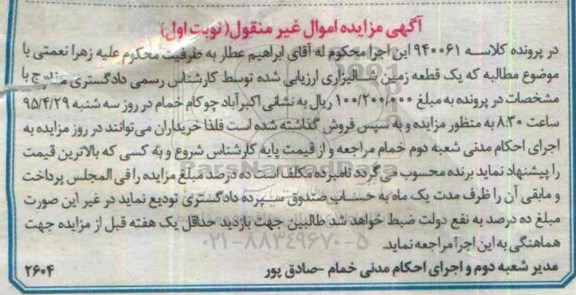 آگهی مزایده اموال غیر منقول( نوبت اول)
در پرونده کلاسه ۹۴۰۰۶۱ این اجرا محکوم له آقای ابراهیم عطار به طرفیت محکوم علیه زهرا نعمتی با
موضوع مطالبه که یک قطعه زمین شالیزاری ارزیابی شده توسط کارشناس رسمی دادگستری با
مشخصات در پرونده به مبلغ ۱۰۰/۲۰۰/۰۰۰ ریال به نشانی اکبرآباد چوکام خمام در روز سه شنبه ۹۵/۴/۲۹
ساعت ۸:۳۰ به منظور مزایده و به سپس فروش گذاشته شده است فلذا خریداران می توانند در روز مزایده به
اجرای احکام مدنی شعبه دوم خمام مراجعه و از قیمت پایه کارشناس شروع و به کسی که بالاترین قیمت
را پیشنهاد نماید برنده محسوب می گردد نامبرده مکلف است ده درصد مبلغ مزایده را فی المجلس پرداخت
و مابقی آن را ظرف مدت یک ماه به حساب صندوق سپرده دادگستری تودیع نماید در غیر این صورت
مبلغ ده درصد به نفع دولت ضبط خواهد شد طالبین جهت بازدید حداقل یک هفته قبل از مزایده جهت
هماهنگی به این اجرا مراجعه نماید.
۰۲۱-۸۸۳۴۹۶۷۰-۵
مدیر شعبه دوم و اجرای احکام مدنی خمام -صادق پور
۲۶۰۴